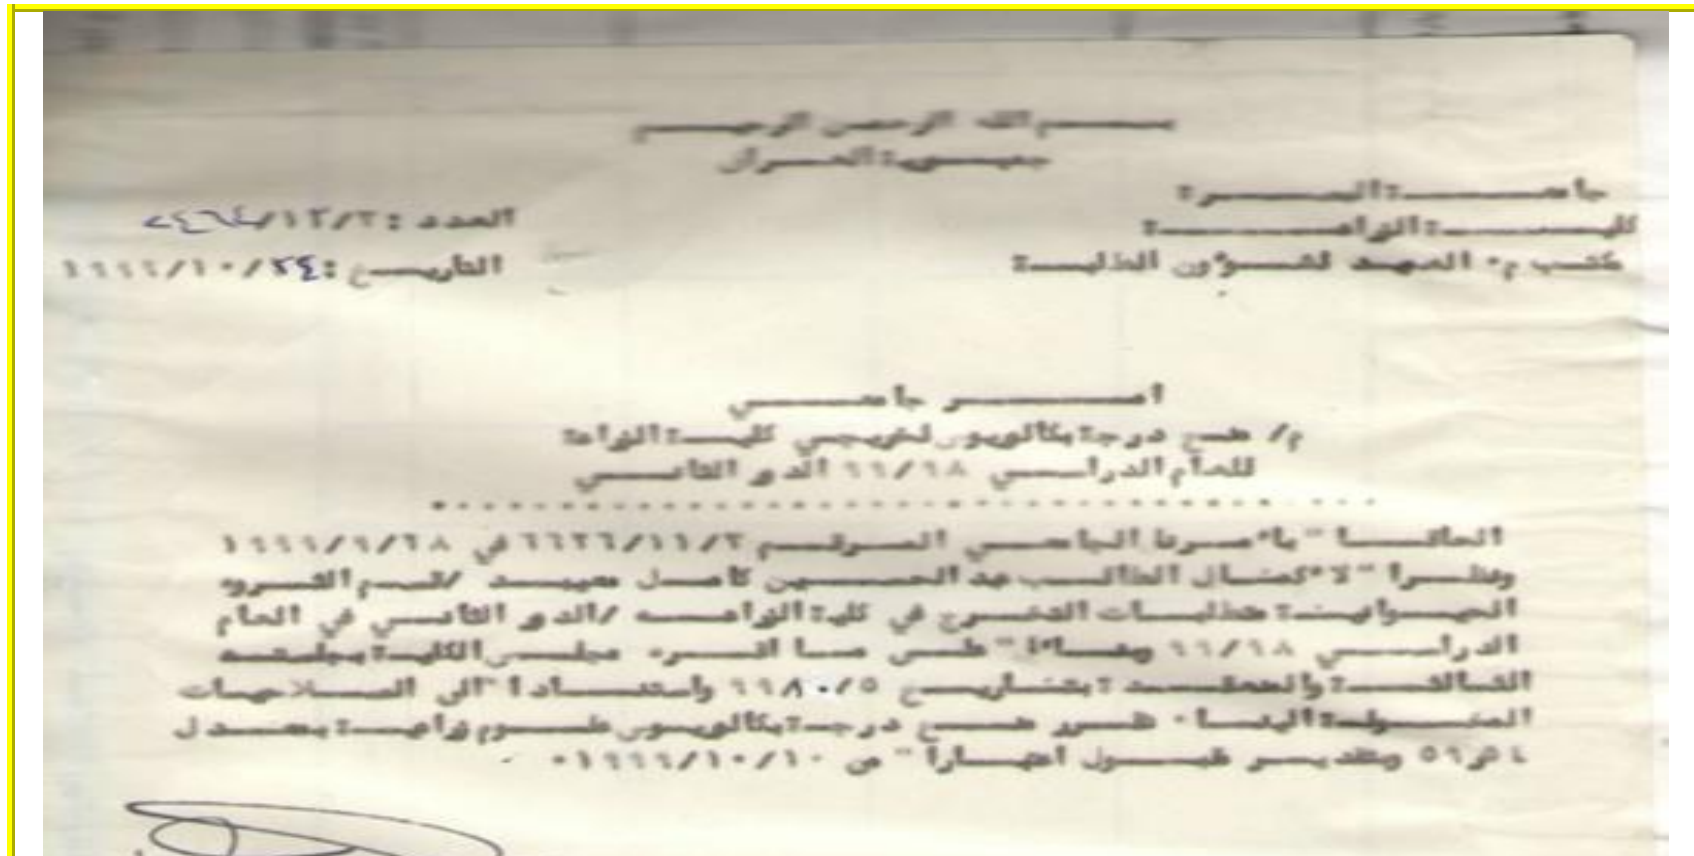 بسم الله الرحمن الرحيم
جمهورية العراق
جامعة البصرة
كلية الزراعة
مكتب م٠ العميد لشؤون الطلبة
العدد : ٣/١٢/
التاريخ : ٢٤/١٠/١٩٩٩
امر جامعي
م/ منح درجة بكالوريوس لخريجي كلية الزراعة
للعام الدراسي ٩٩/٩٨ الدور الثاني
الحاقا " بأمرنا الجامعي المرقم في ١٩٩٩/٩/٢٨
ونظرا " لاكمال الطالب عبد الحسين كامل /قسم الثروة
الحيوانية متطلبات التخرج في كلية الزراعه /الدور الثاني في العام
الدراسي ٩٩/٩٨ " على ما اقره مجلس الكلية بجلسته
الثالثة والمنعقدة بتاريخ واستنادا " الى الصلاحيات
المخولة الينا ٠ تقرر منح درجة بكالوريوس علوم زراعية بمعدل
٥٦ر٥٤ وبتقدير مقبول اعتبارا " من ١٩٩٩/١٠/١٠ ٠